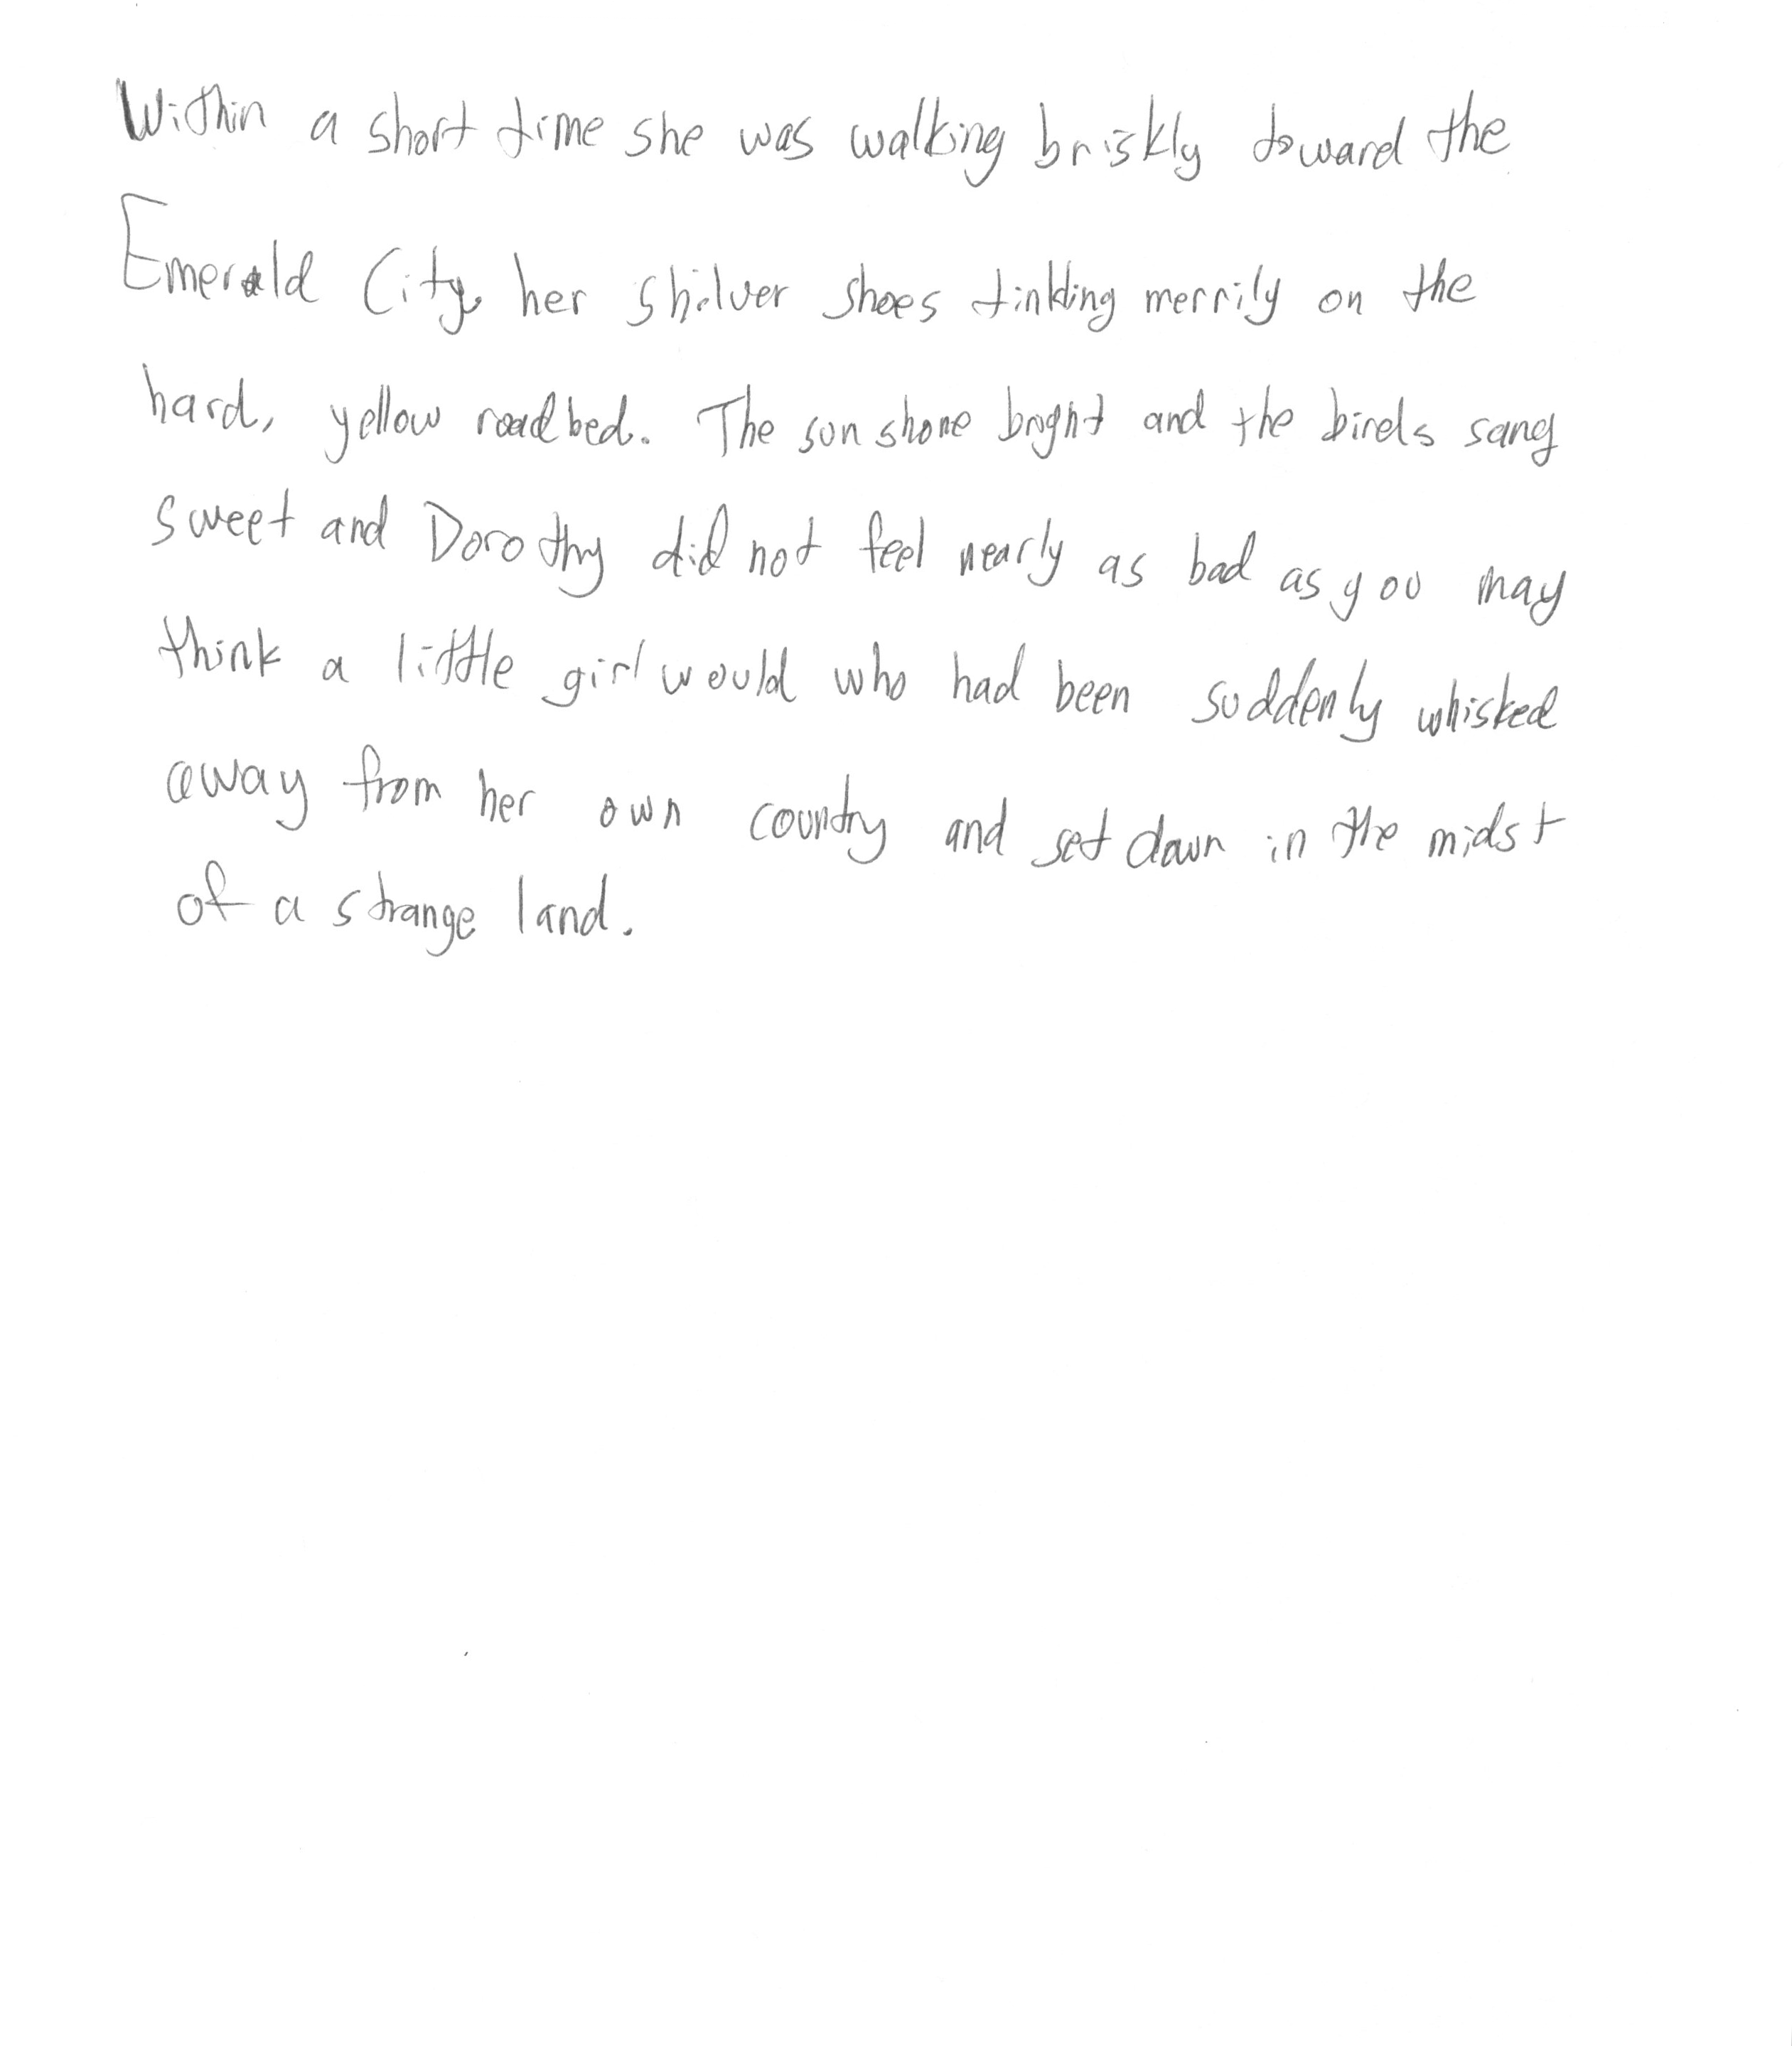 Within a short time she was walking briskly toward the
Emerald City, her shilver shoes tinkling merrily on the
hard, yellow roadbed. The sun shone bright and the birds sang
sweet and Dorothy did not feel nearly as bad as you may
think a little girl would who had been suddenly whisked
away from her own country and set down in the midst
of a strange land.